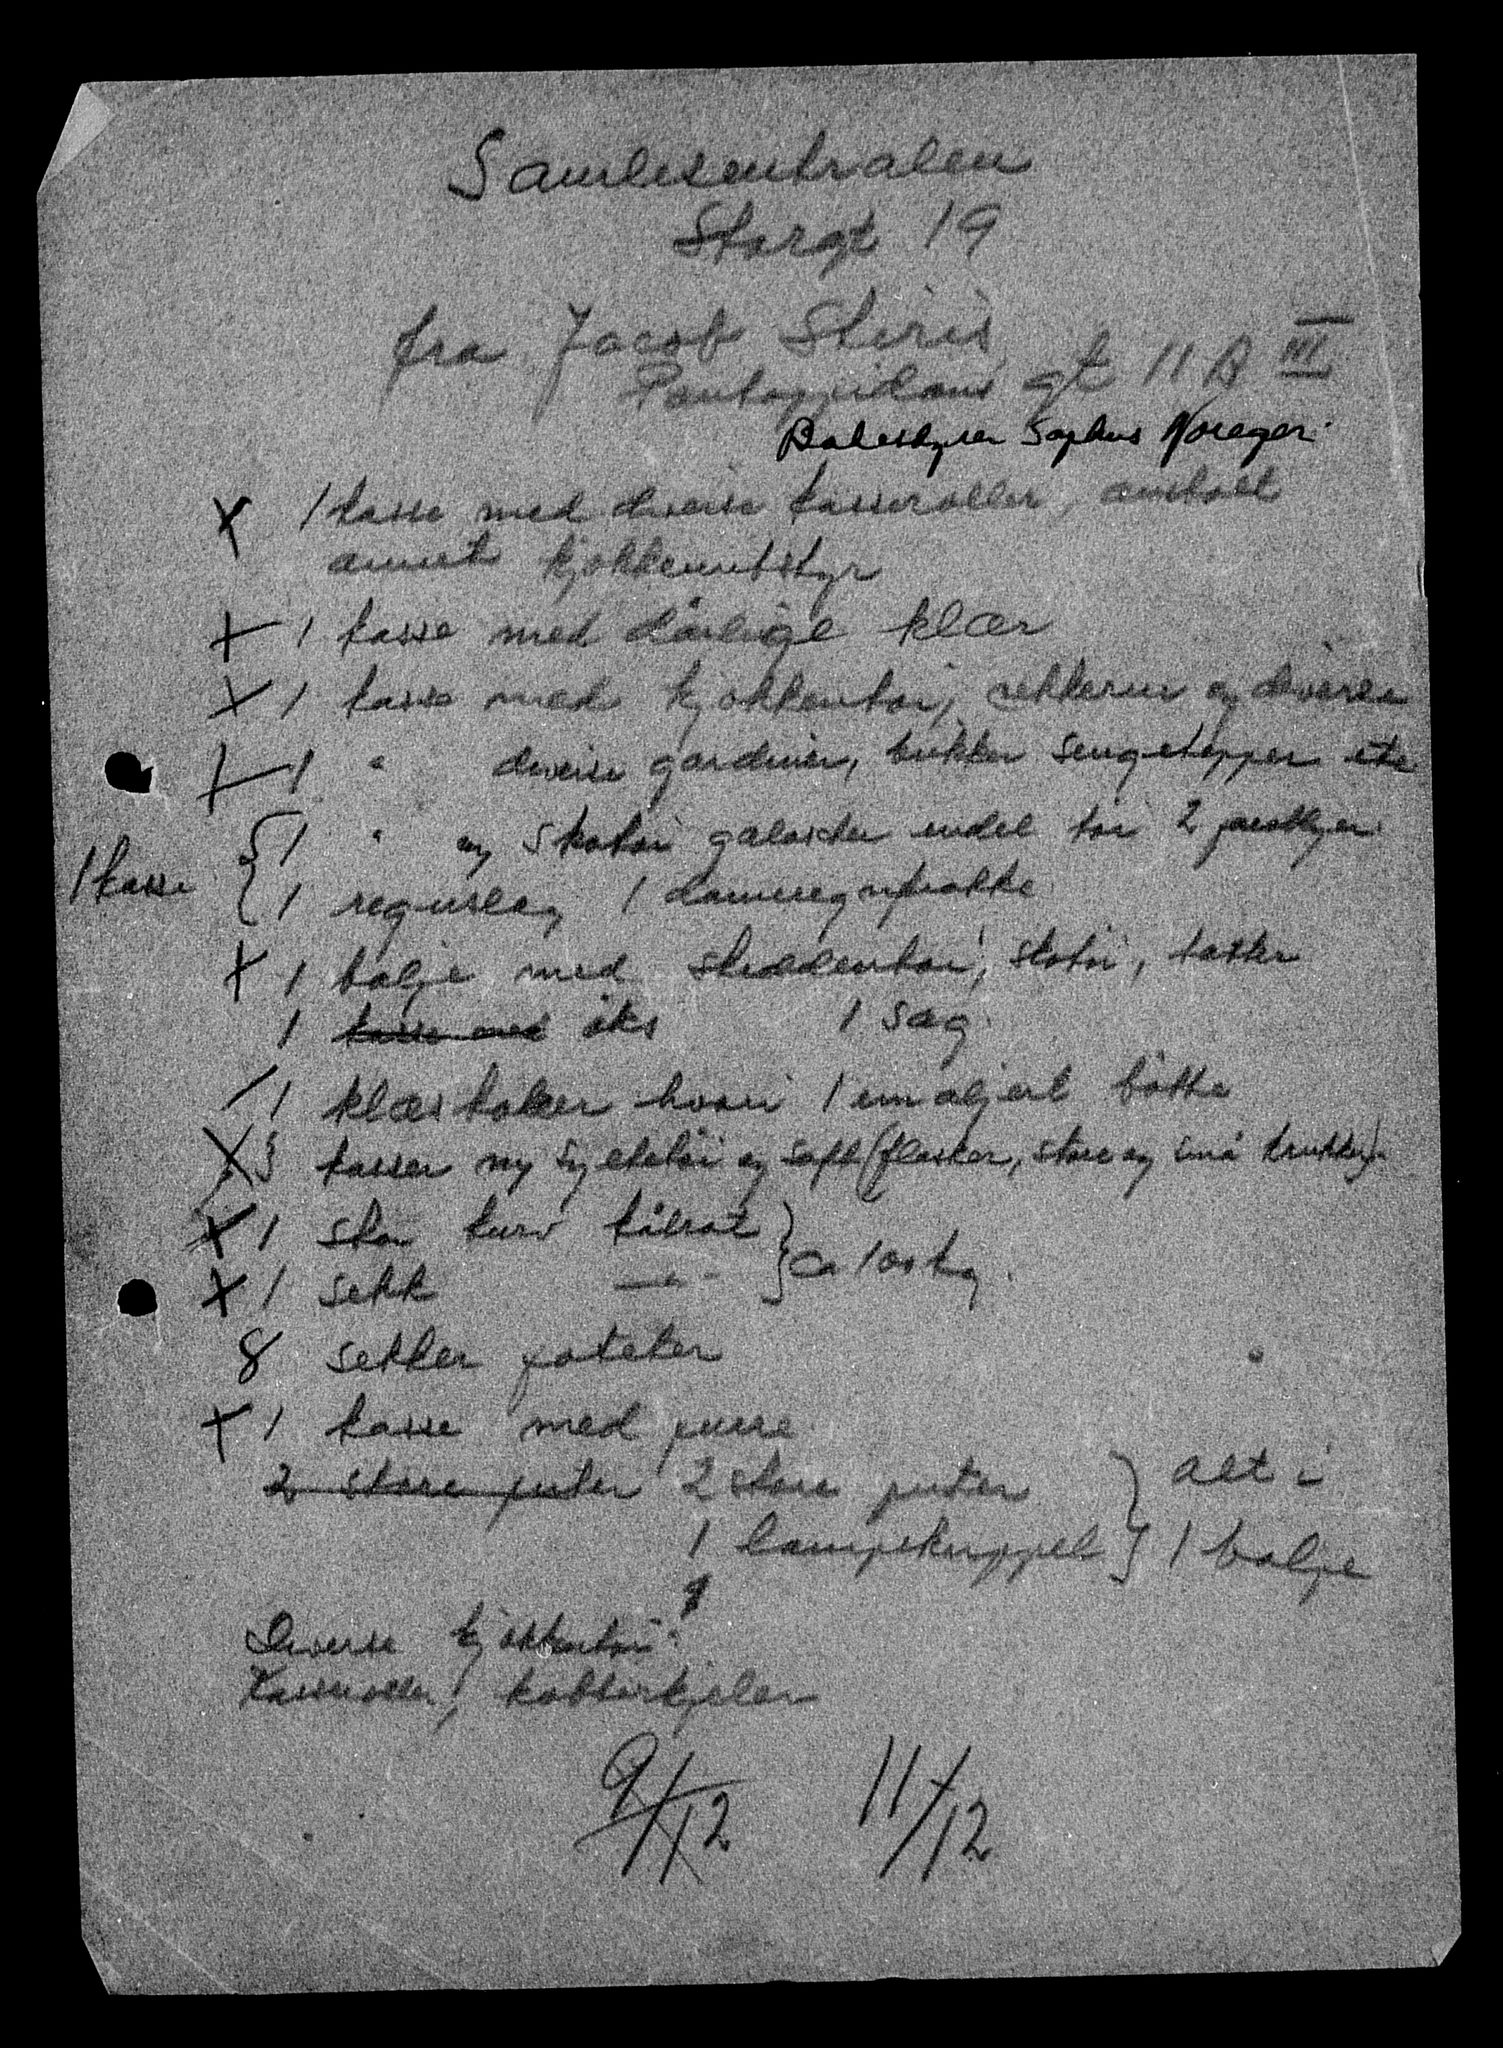 Samlesentralen
Storgt 19
fra Jacob Steris
Pontoppidans gt 11 B III
Bobestyrer Sophus Noreger.
X 1 kasse med diverse kasseroller, annet kjøkkenutstyr
X 1 kasse med dårlige klær
X 1 kasse med kjøkkentøi, og diverse
X 1 " diverse gardiner, sengetepper etc
1 kasse { 1 " m/ skotøi galosker endel tøi 2
1 regnslag 1 dameregnfrakke
X 1 balje med skiddentøi, skotøi, vesker
1 kasse med øks 1 sag
/ 1 klæskoker hvori 1 emaljert bøtte
X 3 kasser m/ syltetøi og saft (flasker, store og små krukker)
X 1 stor kurv kålrot } ca 100 kg.
X 1 sekk — " —
8 sekker poteter
X 1 kasse med purre
2 store puter 2 store puter } alt i
1 lampekuppel } 1 balje
Diverse kjøkkentøi
Kasseroller,
9/12 11/12